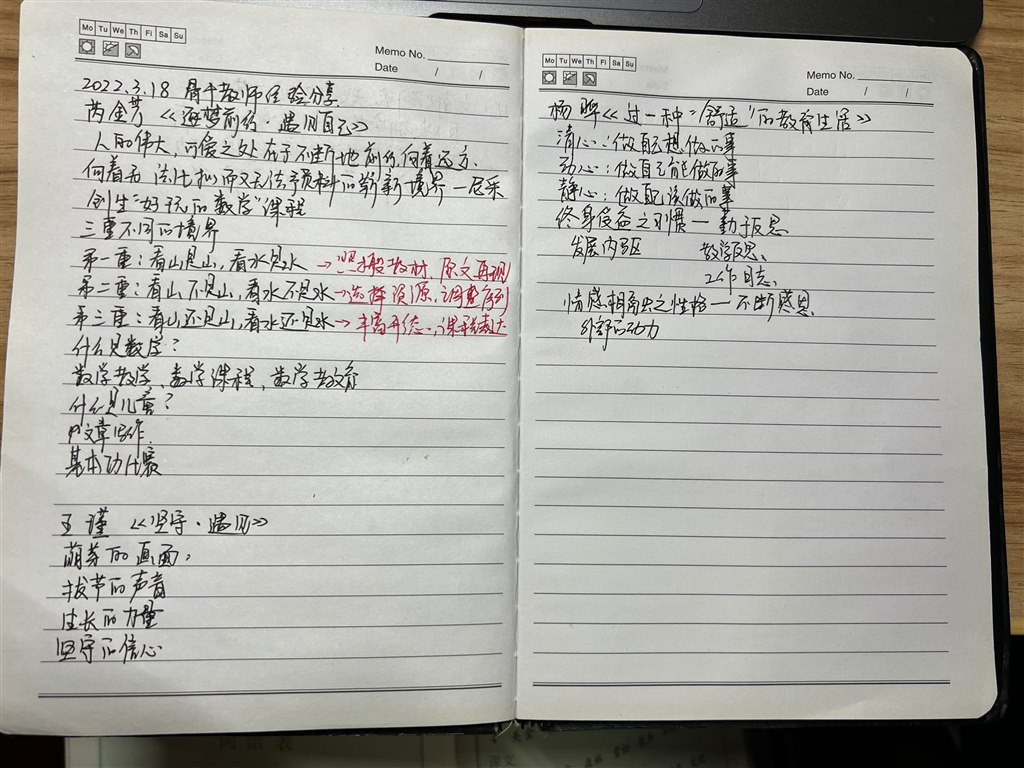 Mo Tu We Th Fi Sa Su
Memo No.
Date / /
2022.3.18 骨干教师经验分享
芮金芳 《逐梦前行·遇见自己》
人的伟大,可爱之处在于不断地前行,向着远方、
向着无法比拟而又无法预料的崭新境界 — 尼采
创生"好玩的数学"课程
三重不同的境界
第一重:看山是山,看水是水 → 照搬教材、原文再现
第二重:看山不是山,看水不是水 → 选择资源、调整序列
第三重:看山还是山,看水还是水 → 丰富形态、课程表达
什么是数学?
数学教学、数学课程、数学教育
什么是儿童?
文章写作
基本功比赛
王 瑾 《坚守·遇见》
萌芽的画面
拔节的声音
生长的力量
坚守的信心
Mo Tu We Th Fi Sa Su
Memo No.
Date / /
杨晔《过一种"舒适"的教育生活》
清心:做自己想做的事
动心:做自己能做的事
静心:做自己该做的事
终身受益之习惯 — 勤于反思
发展内驱 教学反思、
工作日志、
情感相融之性格 — 不断感恩
外部的动力